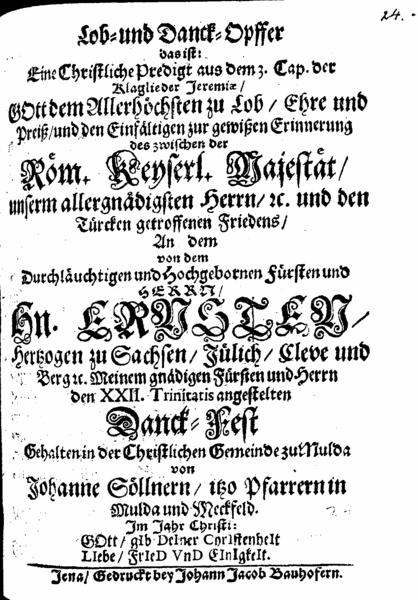 24.
Lob- und Danck-Opffer
das ist:
Eine Christliche Predigt aus dem 3. Cap. der
Klaglieder Jeremiæ /
GOtt dem Allerhöchsten zu Lob / Ehre und
Preiß / und den Einfältigen zur gewißen Erinnerung
des zwischen der
Röm. Keyserl. Majestät /
unserm allergnädigsten Herrn / ꝛc. und den
Türcken getroffenen Friedens /
An dem
von dem
Durchläuchtigen und Hochgebornen Fürsten und
HERRN /
Hn. ERNSTEN /
Hertzogen zu Sachsen / Jülich / Cleve und
Berg ꝛc. Meinem gnädigen Fürsten und Herrn
den XXII. Trinitatis angestelten
Danck-Fest
Gehalten in der Christlichen Gemeinde zu Mulda
von
Johanne Söllnern / itzo Pfarrern in
Mulda und Meckfeld.
Im Jahr Christi:
GOtt / gIb DeIner ChrIstenheIt
LIebe / FrIeD VnD EInIgkeIt.
Jena / Gedruckt bey Johann Jacob Bauhofern.